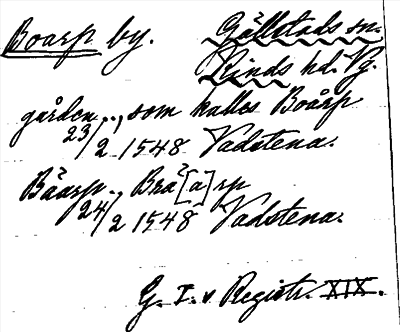 Boarp by. Gällstads sn.
Kinds hd. Vg.
gården .., som kalles Boårp
23/2 1548 Vadstena.
Båarp., Bra°[a]rp
24/2 1548 Vadstena.
G. I. v Registr. XIX.